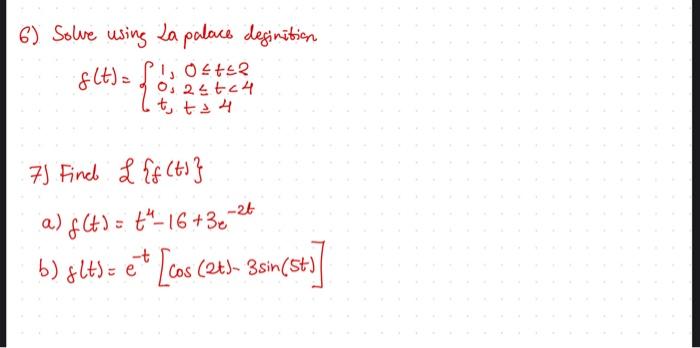 6) Solve using La palace definition
f(t) = { 1, 0 ≤ t ≤ 2
0, 2 ≤ t < 4
t, t ≥ 4
7) Find ℒ {f(t)}
a) f(t) = t⁴ - 16 + 3e⁻²ᵗ
b) f(t) = e⁻ᵗ [cos (2t) - 3sin(5t)]